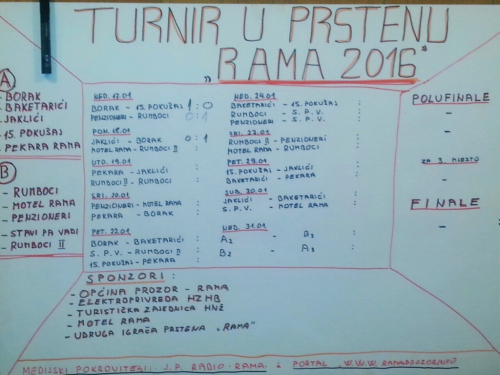 TURNIR U PRSTENU
„RAMA 2016"
A
- BORAK
- BAKETARIĆI
- JAKLIĆI
- 15. POKUŠAJ
- PEKARA RAMA
B
- RUMBOCI
- MOTEL RAMA
- PENZIONERI
- STAVI PA VADI
- RUMBOCI II
NED. 17.01
BORAK - 15. POKUŠAJ 1:0
PENZIONERI - RUMBOCI 0:1
PON. 18.01
JAKLIĆI - BORAK 0:1
MOTEL RAMA - RUMBOCI II
UTO. 19.01
PEKARA - JAKLIĆI :
RUMBOCI II - RUMBOCI :
SRI. 20.01
PENZIONERI - MOTEL RAMA :
PEKARA - BORAK :
PET. 22.01
BORAK - BAKETARIĆI :
S.P.V. - RUMBOCI II :
15. POKUŠAJ - PEKARA :
NED. 24.01
BAKETARIĆI - 15. POKUŠAJ :
RUMBOCI - S.P.V. :
PENZIONERI - S.P.V. :
SRI. 27.01
RUMBOCI II - PENZIONERI :
MOTEL RAMA - RUMBOCI :
PET. 29.01
15. POKUŠAJ - JAKLIĆI :
BAKETARIĆI - PEKARA :
SUB. 30.01
JAKLIĆI - BAKETARIĆI :
S.P.V. - MOTEL RAMA :
NED. 31.01
A2 - B3 :
B2 - A3 :
POLUFINALE
-
-
ZA 3. MJESTO
-
FINALE
-
SPONZORI:
- OPĆINA PROZOR - RAMA
- ELEKTROPRIVREDA HZHB
- TURISTIČKA ZAJEDNICA HNŽ
- MOTEL RAMA
- UDRUGA IGRAČA PRSTENA „RAMA"
MEDIJSKI POKROVITELJI: J.P. RADIO RAMA i PORTAL